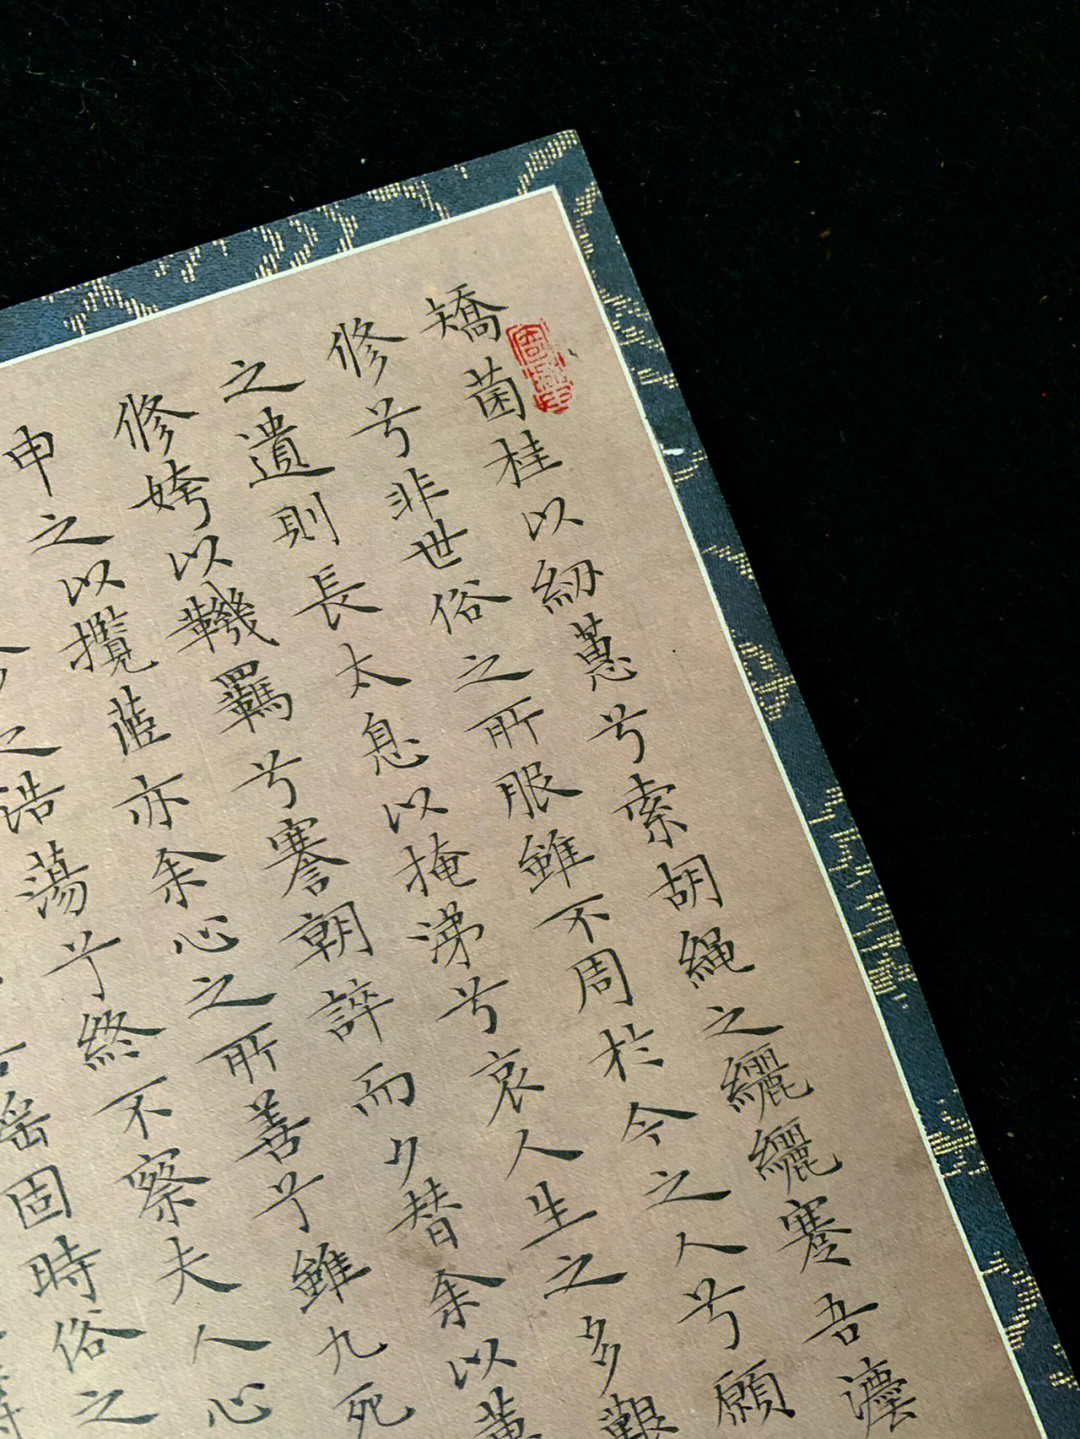 矯菌桂以紉蕙兮索胡繩之纚纚蹇吾灋
修兮非世俗之所服雖不周於今之人兮願
之遺則長太息以掩涕兮哀人生之多艱
修姱以鞿羈兮謇朝誶而夕替余以蕙
申之以攬茝亦余心之所善兮雖九死
之浩蕩兮終不察夫人心
固時俗之